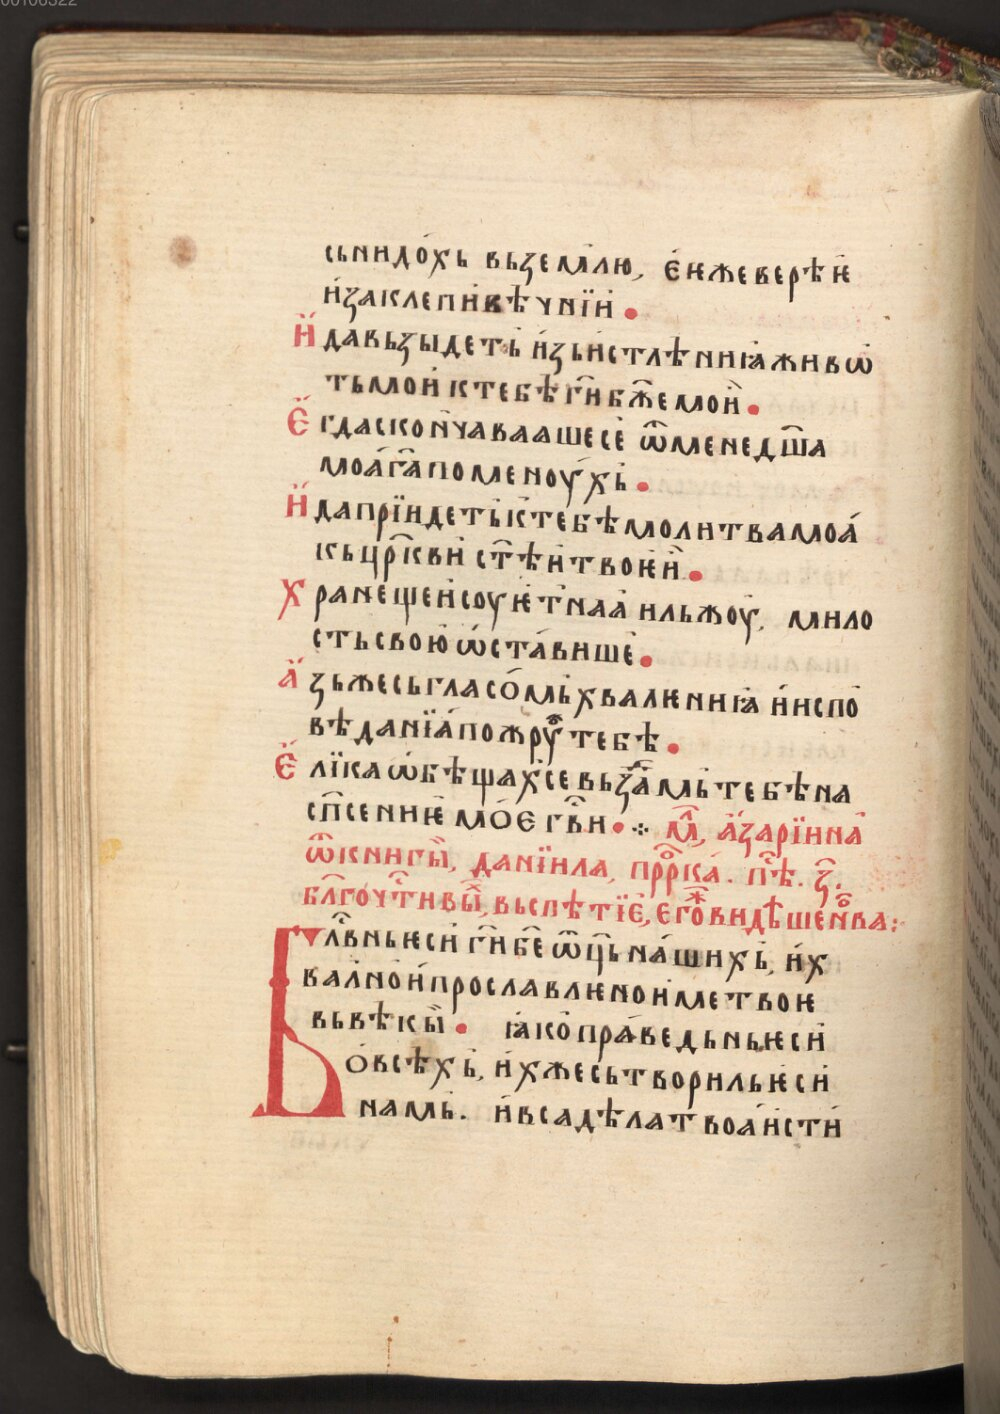 00108522
сьнидо́хь вьземлю, ѐꙗжеверѣꙗ
и҆закле́пивѣчнїи •
И҆ давьзыдеть и҆зьистлѣнїꙗживѡ
тьмои ктебѣ ги҃ бж҃емои •
Е҆ гдасконⷱ҇аваашесе ѿменедш҃а
моа̀ га҃поменоу́хь •
И҆ даприїидетьктебѣмолитвамоа́
кьцрк҃ви ст҃ѣитвоѥи •
Х ранещеи соуѥт꙽наа ильжоу, мило
стьсвою ѡ҆ста́више •
А҆ зьжесьгласо́мьхвалѥнїꙗ и҆испо
вѣданїа̀пожроу тебѣ •
Е҆ лїка ѡ҆бѣщахсе вьз꙽дамь тебѣна
сп҃сенїѥ мо́ѥ гв҃и • мл҃, а҆зарїина
ѿкнигы̀, данїила, прⷪ҇рка . пѣⷭ҇ . з҃.
бл҃гочⷭ҇тивыⷯ,вьспѣтїѐ,ѥгⷪ҇жвидѣшенⷪ҇ва:
Б лⷭ҇вньѥси ги҃ бе҃ ѿц҃ьна́шихь, и҆х
валнои҆прославлѥнои҆метвоѥ
вьвѣкы̀ • ꙗ҆коправедьньѥси
ѻ҆всѣхь, и҆хжесьтворильѥси
намь. и҆всадѣлатвоа̀исти